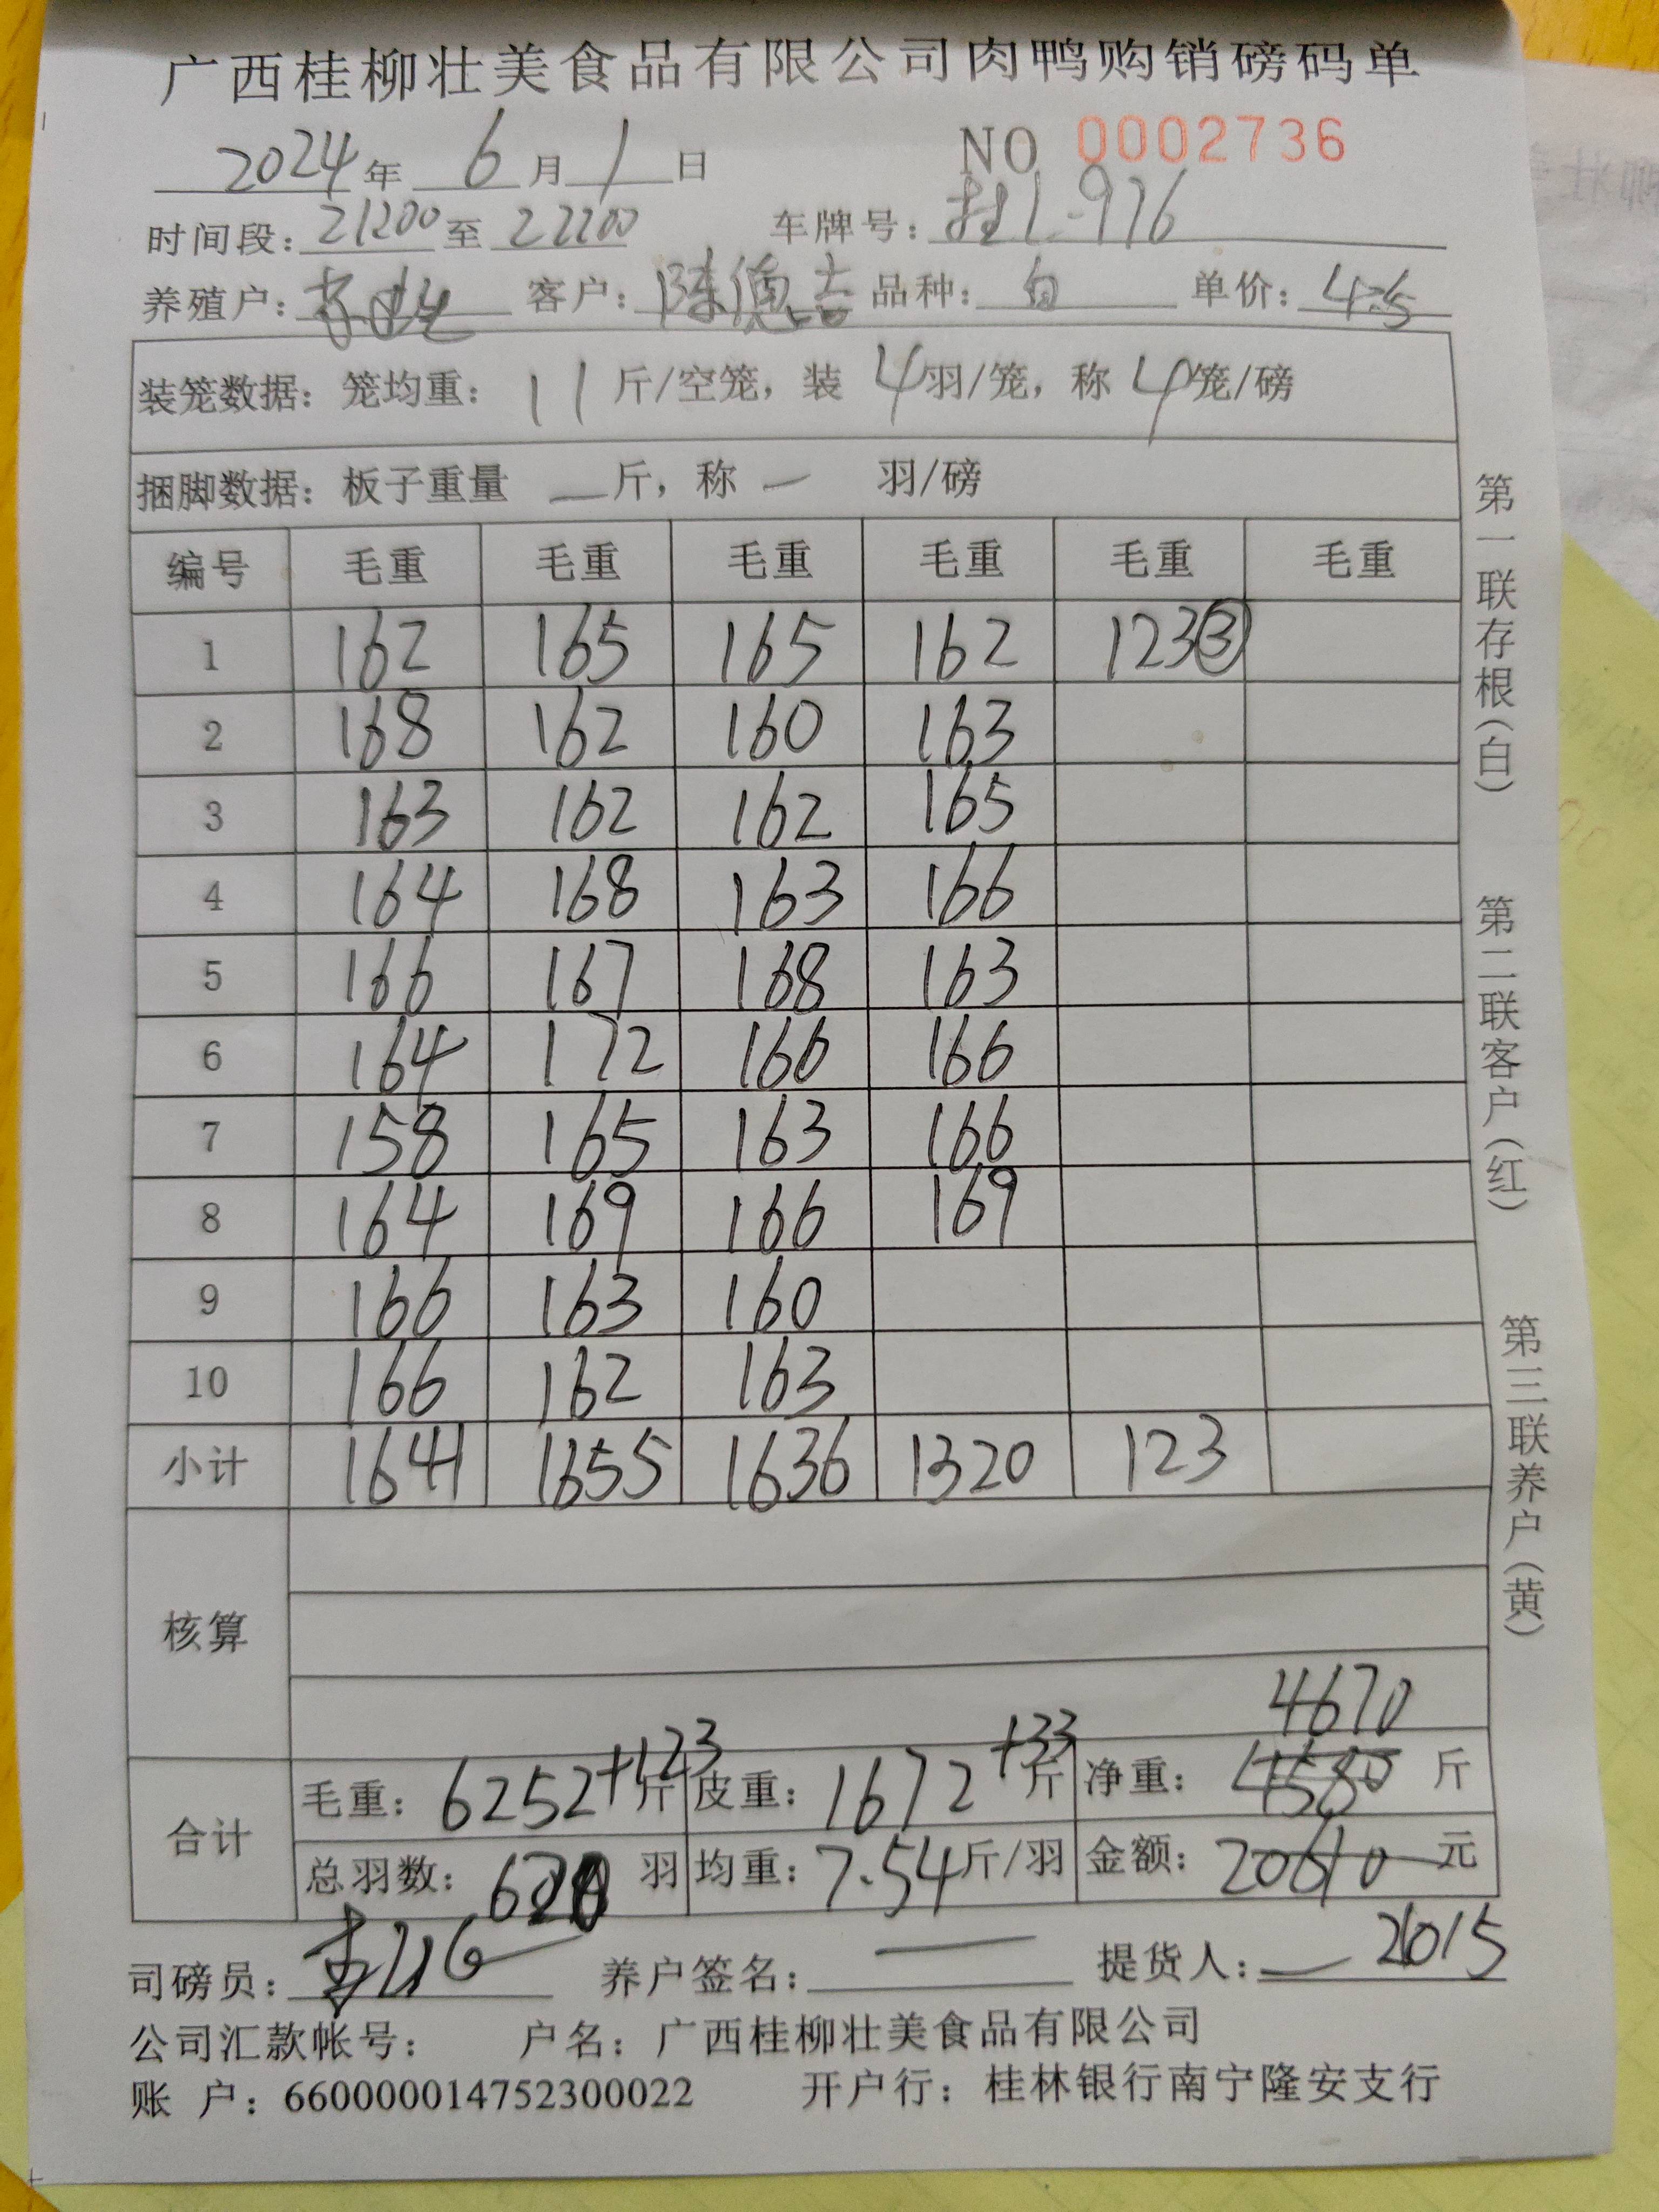 广西桂柳壮美食品有限公司肉鸭购销磅码单
2024年 6月1日 NO 0002736
时间段：21:00至22:00 车牌号：
养殖户： 客户：陈德吉 品种：白 单价：4.5
装笼数据：笼均重：11斤/空笼，装4羽/笼，称4笼/磅
捆脚数据：板子重量 —斤，称 — 羽/磅
编号 毛重 毛重 毛重 毛重 毛重 毛重
1 162 165 165 162 123③
2 168 162 160 163
3 163 162 162 165
4 164 168 163 166
5 166 167 168 163
6 164 172 166 166
7 158 165 163 166
8 164 169 166 169
9 166 163 160
10 166 162 163
小计 1641 1655 1636 1320 123
核算
4670
合计 毛重：6252+123斤 皮重：1672+33斤 净重：4580斤
总羽数：620羽 均重：7.54斤/羽 金额：20610元
司磅员： 养户签名：— 提货人：— 21015
公司汇款帐号： 户名：广西桂柳壮美食品有限公司
账 户：660000014752300022 开户行：桂林银行南宁隆安支行
第一联存根（白）
第二联客户（红）
第三联养户（黄）